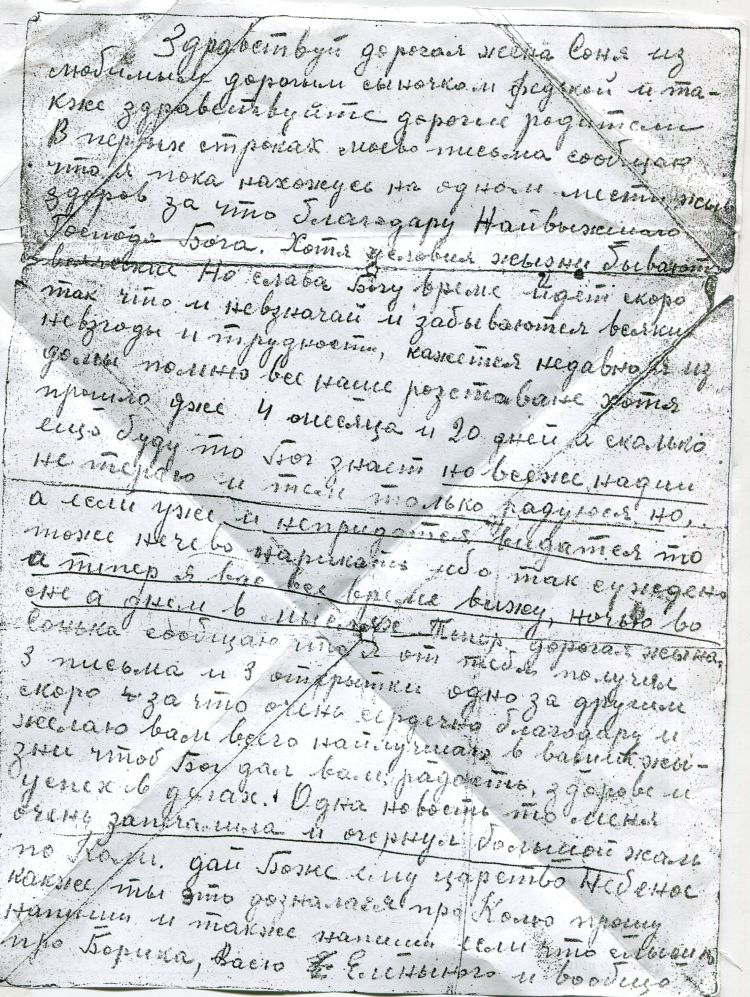 Здравствуй дорогая жена Соня из
любимым дорогим сыночком Федкой и та-
кже здравствуйте дорогие родители
В первых строках моево письма сообщаю
что я пока нахожусь на одном мести жыв
здоров за что благодару Наивыжшаго
Господа Бога. Хотя условия жызни бывают
всяческии Но слава Богу време йдет скоро
так что и невзначай и забываются всякии
невзгоды и трудности, кажется недавно я из
домы помню все наше розставане хотя
прошло дже 4 месяца и 20 дней а сколько
ещо буду то Бог знает но всеже надии
не теряю и тем только радуюся но..
а если уже и непридется видатся то
тоже нечево нарикать ибо так суждено
а тепер я вас все време вижу, ночью во
сне а днем в мыслях Тепер дорогая жына
Сонька сообщаю что я от тебя получил
3 письма и 3 открытки одно за другим
скоро за что очень сердечно благодару и
желаю вам всего наилучшаго в вашых жы-
зни чтоб Бог дал вам радость, здоровя и
успех в делах. Одна новость то меня
очень запичалила и огорнул большой жаль
по Коли. дай Боже ему царство Небеное
какже ты это дозналася про Колю прошу
напиши и также напиши если что слышно
про Борика, Васю Еленыного и вообщо